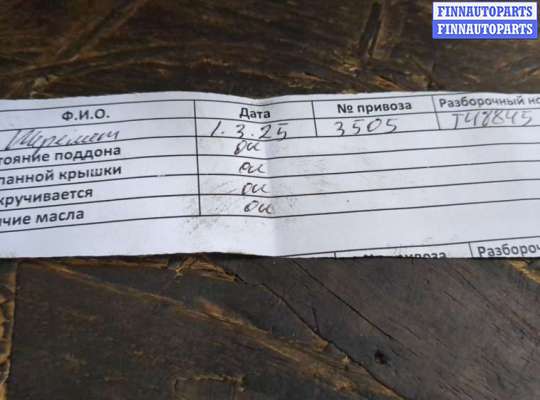 FINNAUTOPARTS
FINNAUTOPARTS
Ф.И.О. Дата № привоза Разборочный но
Шеремет 1.3.25 3505 T48845
тояние поддона ок
панной крышки ок
кручивается ок
чие масла ок
Разбороч